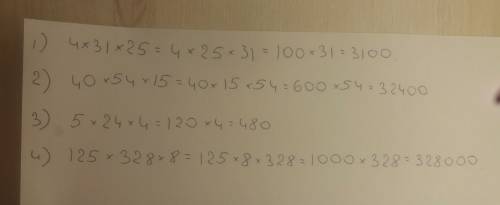 1) 4×31×25=4×25×31=100×31=3100
2) 40×54×15=40×15×54=600×54=32400
3) 5×24×4=120×4=480
4) 125×328×8=125×8×328=1000×328=328000